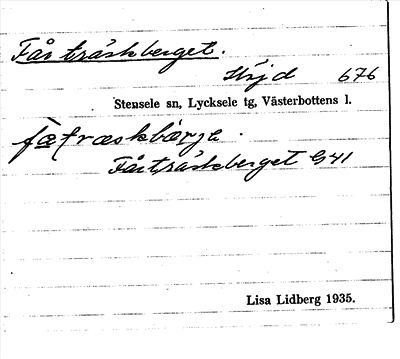 Fårträskberget.
Höjd 676
Stensele sn, Lycksele tg, Västerbottens l.
Fårträskberget G41
Lisa Lidberg 1935.